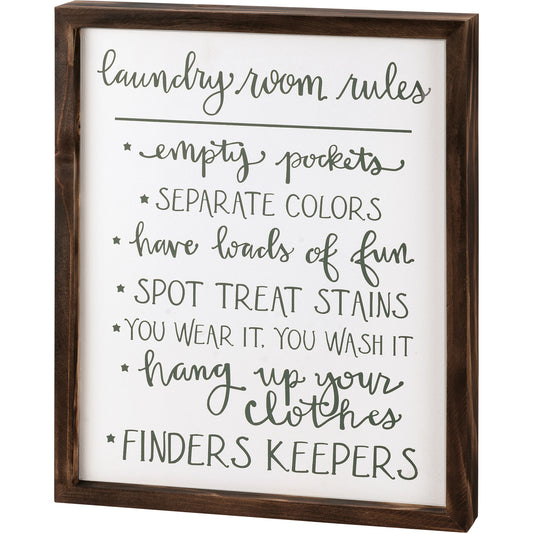 laundry room rules
* empty pockets
* SEPARATE COLORS
* have loads of fun
* SPOT TREAT STAINS
* YOU WEAR IT, YOU WASH IT
* hang up your
clothes
* FINDERS KEEPERS